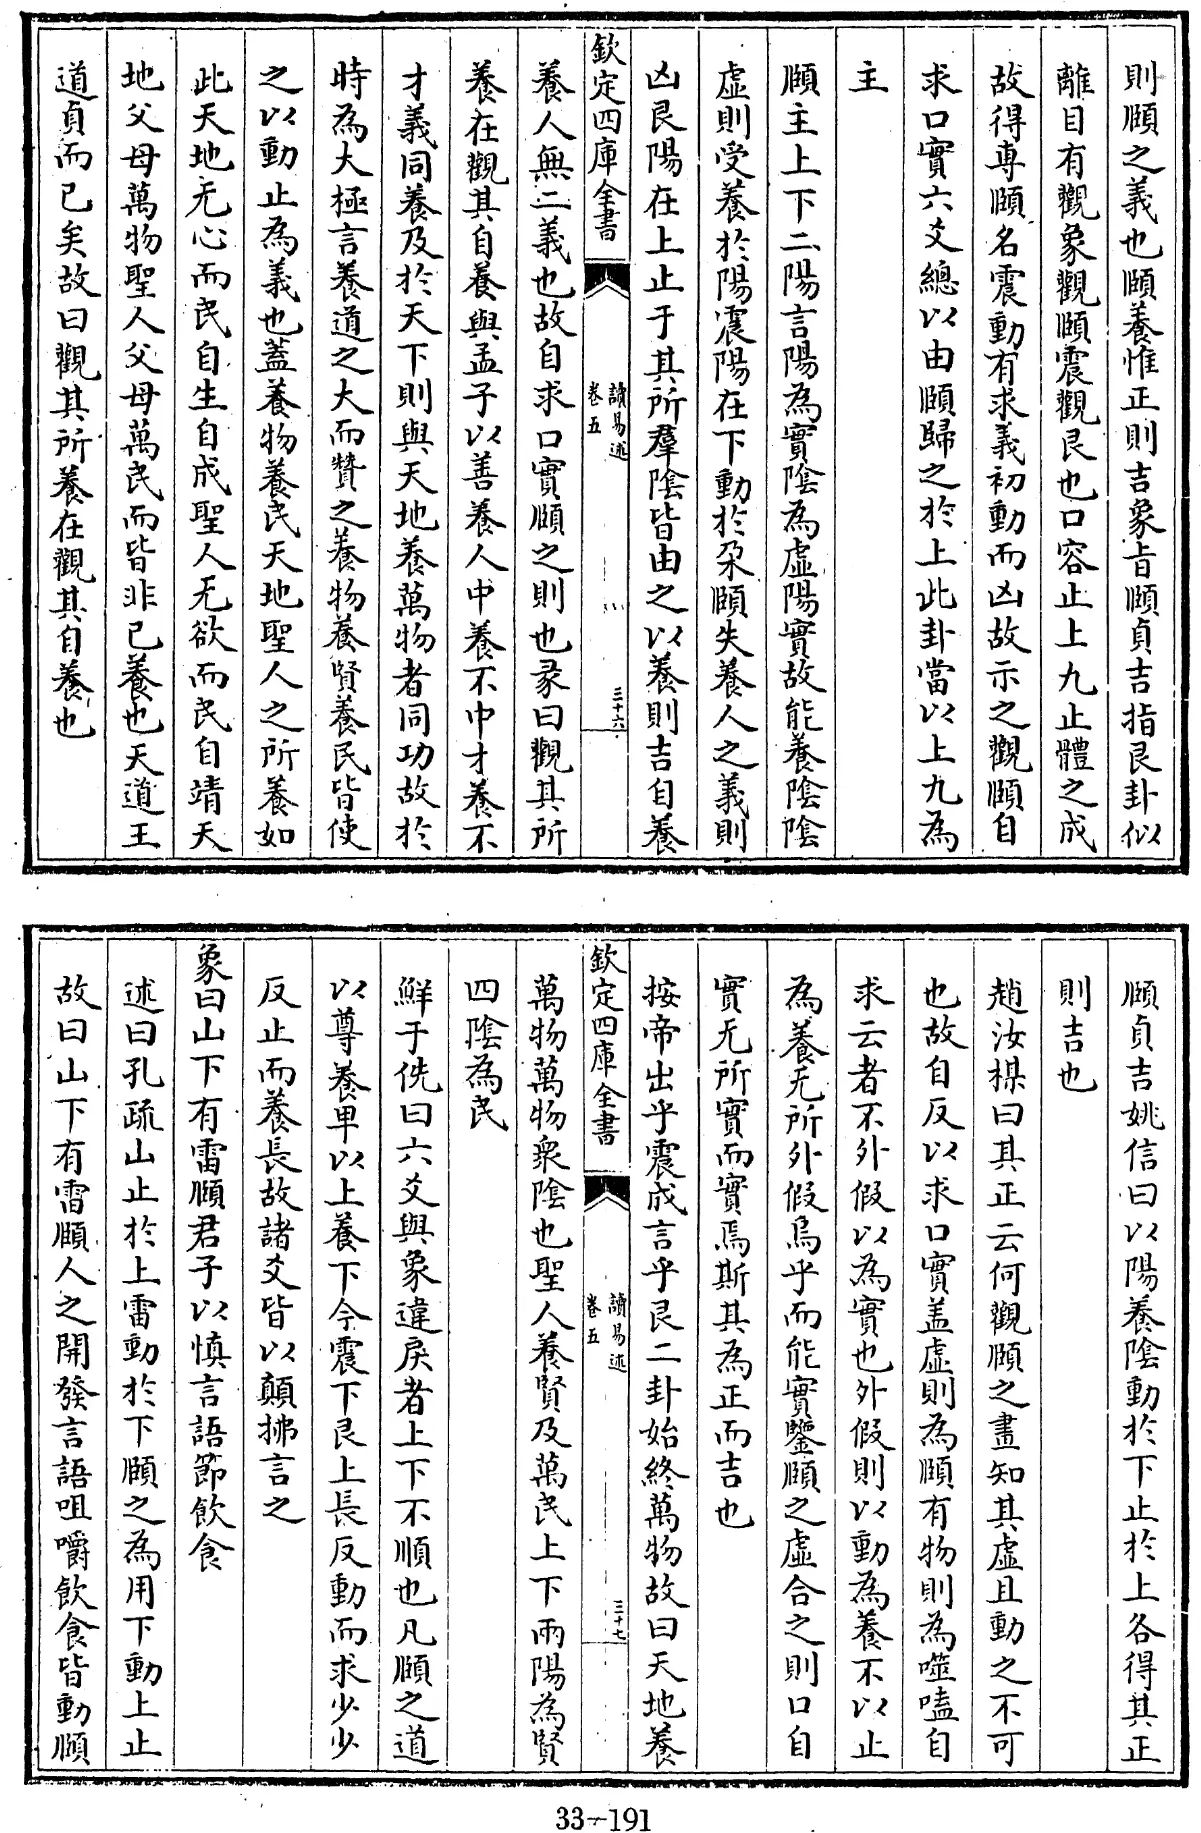 則頤之義也頤養惟正則吉象旨頤貞吉指艮卦似
離目有觀象觀頤震觀艮也口容止上九止體之成
故得專頤名震動有求義初動而凶故示之觀頤自
求口實六爻總以由頤歸之於上此卦當以上九為
主
頤主上下二陽言陽為實陰為虛陽實故能養陰陰
虛則受養於陽震陽在下動於朶頤失養人之義則
凶艮陽在上止于其所羣陰皆由之以養則吉自養
欽定四庫全書
讀易述
卷五
三十六
養人無二義也故自求口實頤之則也彖曰觀其所
養在觀其自養與孟子以善養人中養不中才養不
才義同養及於天下則與天地養萬物者同功故於
時為大極言養道之大而贊之養物養賢養民皆使
之以動止為義也蓋養物養民天地聖人之所養如
此天地无心而民自生自成聖人无欲而民自靖天
地父母萬物聖人父母萬民而皆非已養也天道王
道貞而已矣故曰觀其所養在觀其自養也
頤貞吉姚信曰以陽養陰動於下止於上各得其正
則吉也
趙汝楳曰其正云何觀頤之畫知其虛且動之不可
也故自反以求口實盖虛則為頤有物則為噬嗑自
求云者不外假以為實也外假則以動為養不以止
為養无所外假烏乎而能實鑒頤之虛合之則口自
實无所實而實焉斯其為正而吉也
按帝出乎震成言乎艮二卦始終萬物故曰天地養
欽定四庫全書
讀易述
卷五
三十七
萬物萬物衆陰也聖人養賢及萬民上下兩陽為賢
四陰為民
鮮于侁曰六爻與象違戾者上下不順也凡頤之道
以尊養卑以上養下今震下艮上長反動而求少少
反止而養長故諸爻皆以顛拂言之
象曰山下有雷頤君子以慎言語節飲食
述曰孔疏山止於上雷動於下頤之為用下動上止
故曰山下有雷頤人之開發言語咀嚼飲食皆動頤
33-191